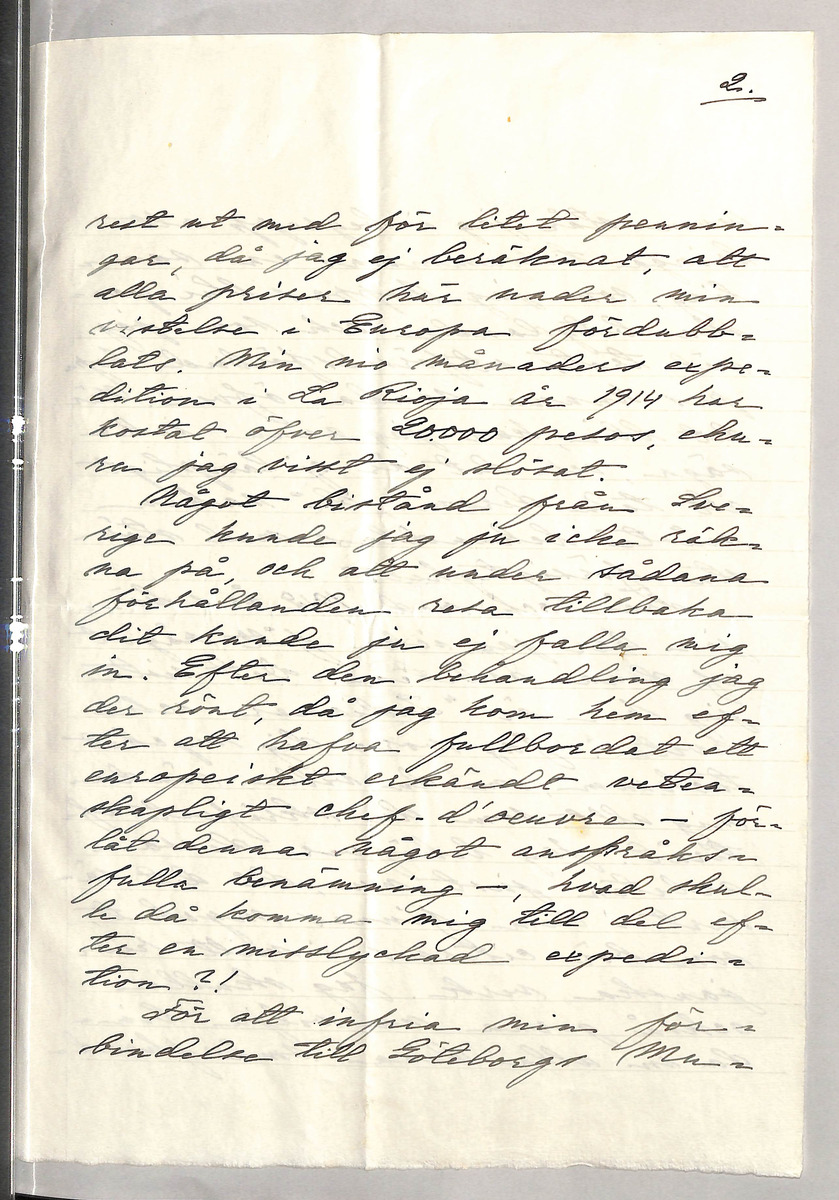 2.
rest ut med för litet pennin-
gar, då jag ej beräknat, att
alla priser här under min
vistelse i Europa fördubb-
lats. Min nio månaders expe-
dition i La Rioja år 1914 har
kostat öfver 20.000 pesos, ehu-
ru jag visst ej slösat.
Något bistånd från Sve-
rige kunde jag ju icke räk-
na på, och att under sådana
förhållanden resa tillbaka
dit kunde ju ej falla mig
in. Efter den behandling jag
der rönt, då jag kom hem ef-
ter att hafva fullbordat ett
europeiskt erkändt veten-
skapligt chef-d'oeuvre — för-
låt denna något anspråks-
fulla benämning —, hvad skul-
le då komma mig till del ef-
ter en misslyckad expedi-
tion?!
För att infria min för-
bindelse till Göteborgs Mu-